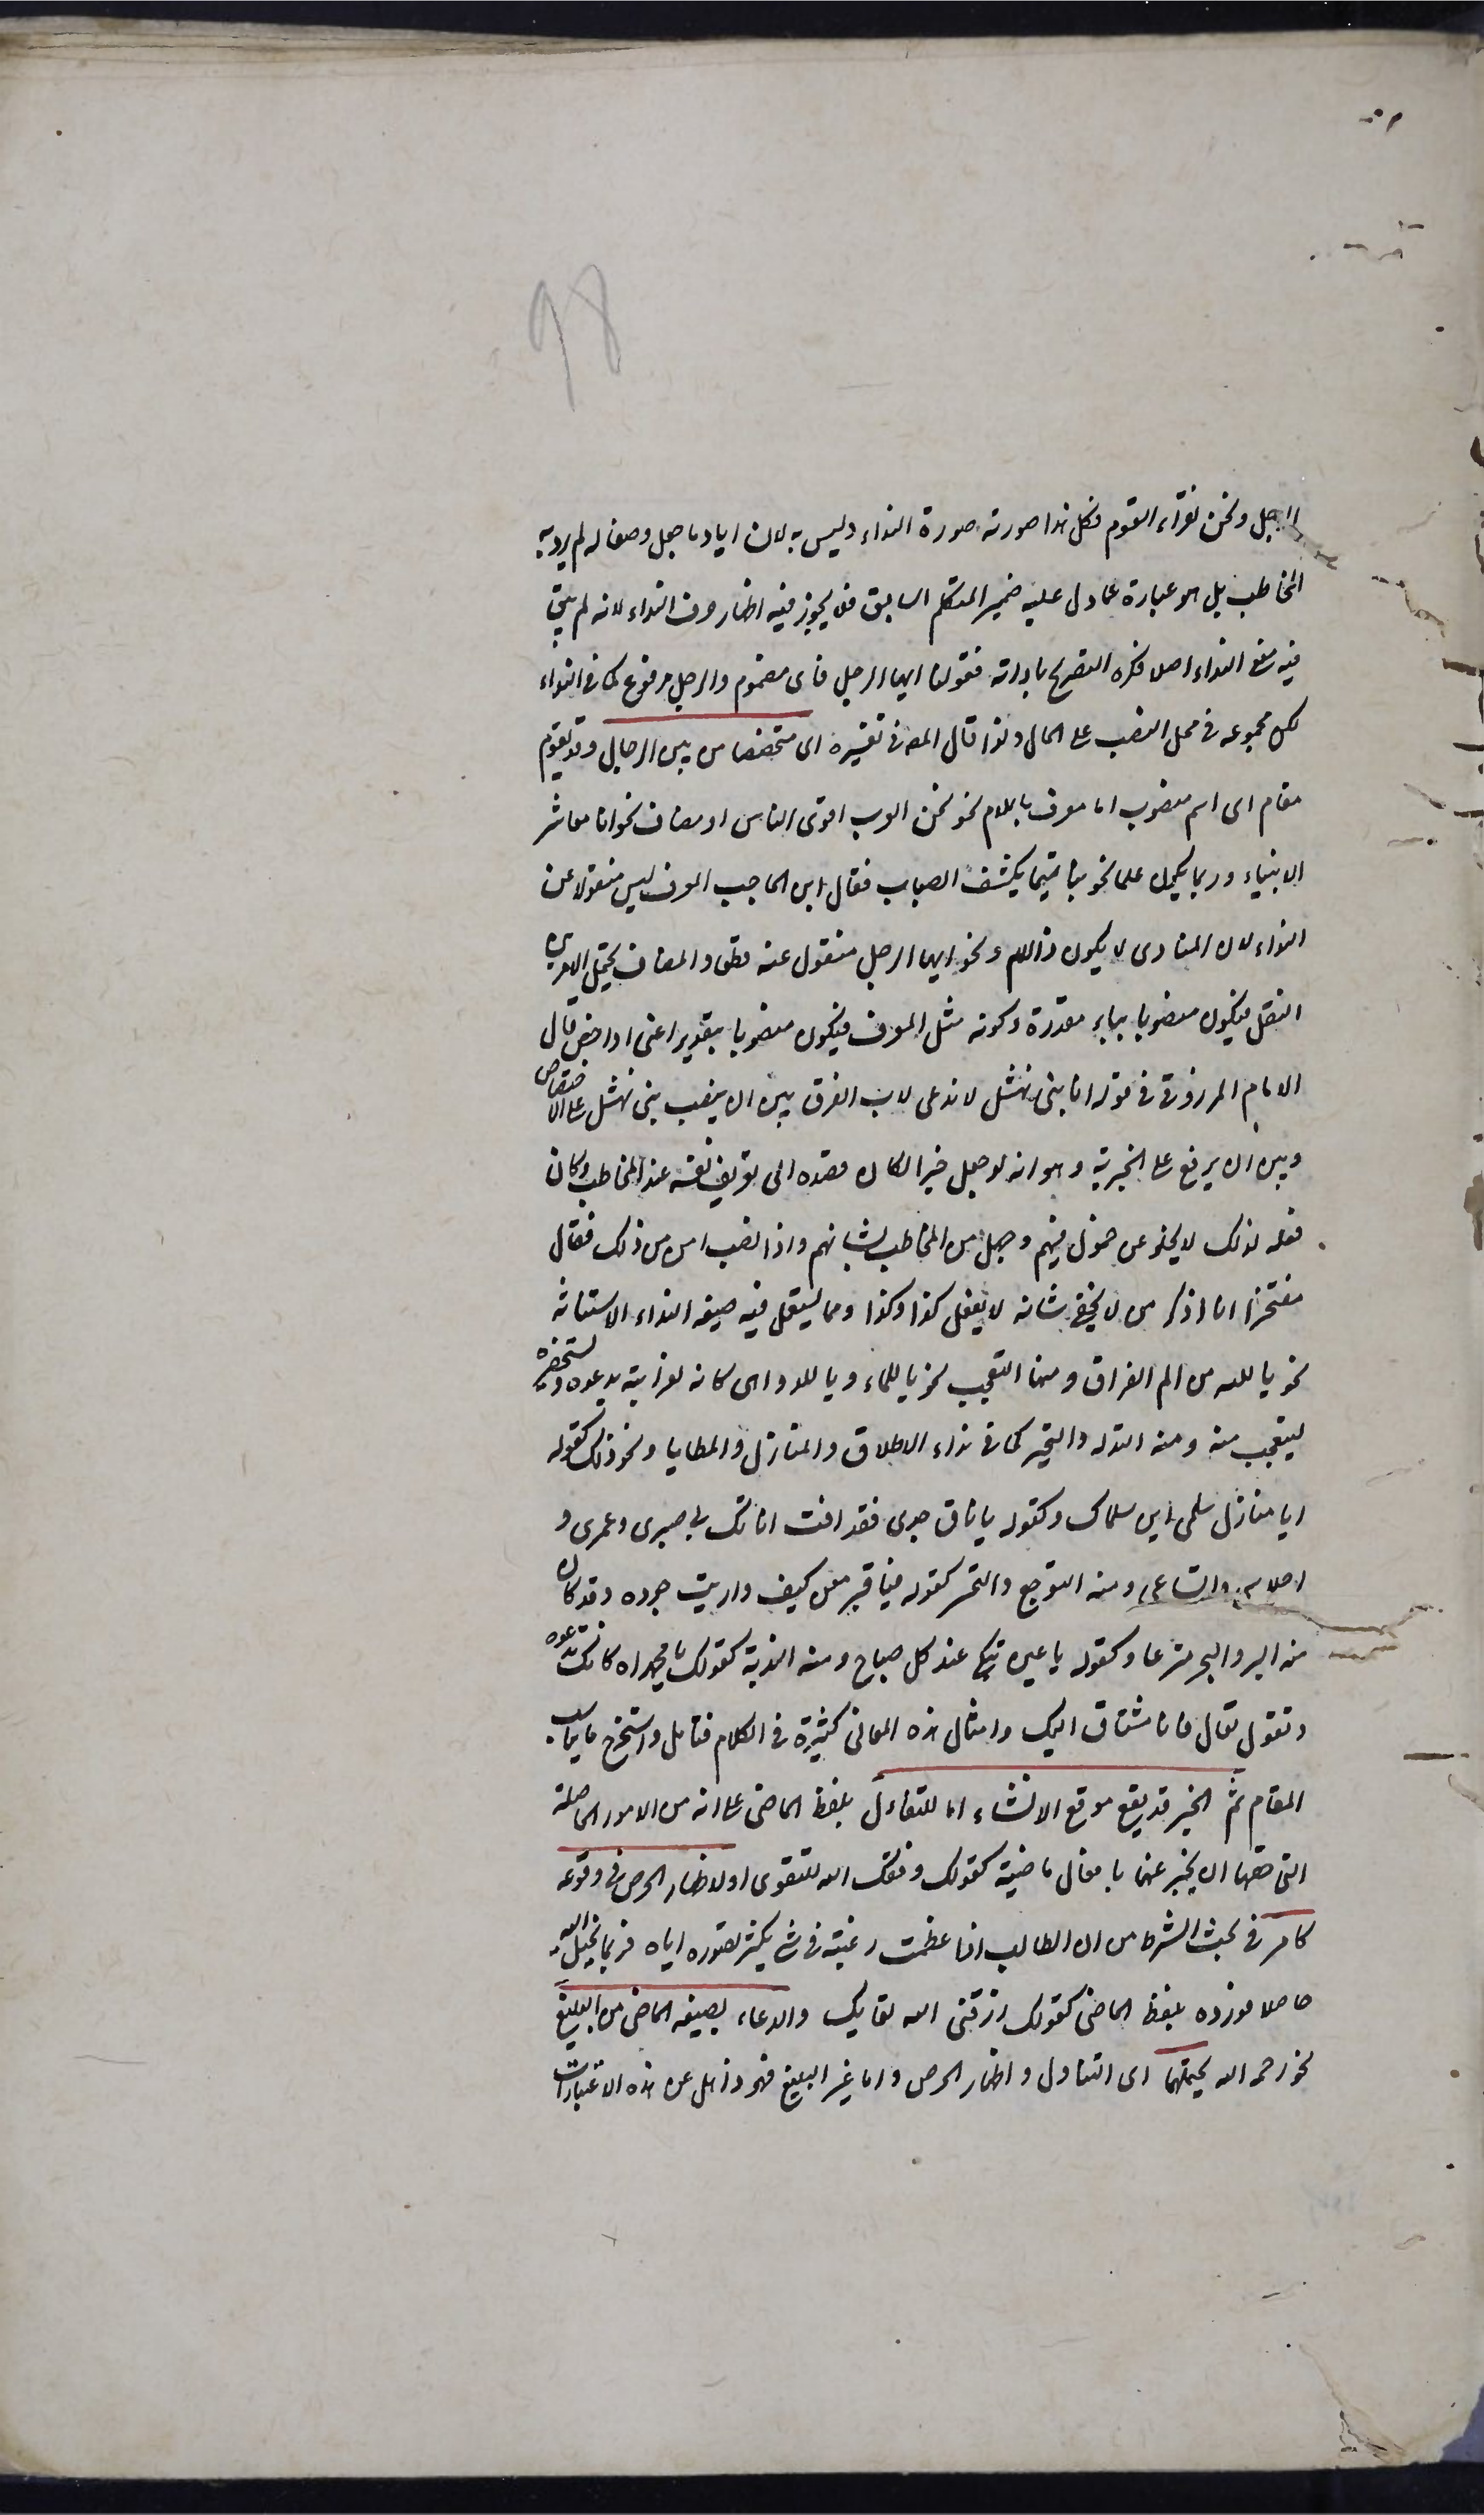 98
الرجل ونحن نقرأ ايها القوم فكل هذا صورته صورة النداء وليس به لان ايا وما جعل وصفا له لم يرد به
المخاطب بل هو عبارة عما دل عليه ضمير المتكلم السابق فلا يجوز فيه اظهار حرف النداء لانه لم يبق
فيه معنى النداء اصلا فكره التصريح باداته فقولنا ايها الرجل فاى مضموم والرجل مرفوع كما فى النداء
لكن مجموعه فى محل النصب على الحال ولذا قال المص فى تفسيره اى متخصصا من بين الرجال وقد يقوم
مقام اى اسم منصوب اما معرف باللام نحو نحن العرب اقرى الناس او مضاف نحو انا معاشر
الانبياء وربما يكون علما نحو بنا تميما يكشف الضباب فقال ابن الحاجب المعرف ليس منقولا عن
النداء لان المنادى لا يكون ذا اللام ونحو ايها الرجل منقول عنه قطعا والمضاف يحتمل الامرين
النقل فيكون منصوبا بياء مقدرة وكونه مثل المعرف فيكون منصوبا بتقدير اعنى او اخص قال
الامام المرزوقى فى قوله انا بنى نهشل لا ندعى لاب الفرق بين ان ينصب بنى نهشل على الاختصاص
وبين ان يرفع على الخبرية وهو انه لو جعل خبرا لكان قصده الى تعريف نفسه عند المخاطب وكان
فعله لذلك لا يخلو عن خمول فيهم وجهل من المخاطب بشانهم واذا نصب امن من ذلك فقال
مفتخرا انا اذكر من لا يخفى شانه لا يفعل كذا وكذا ومما يستعمل فيه صيغة النداء الاستغاثة
نحو يا لله من الم الفراق ومنها التعجب نحو يا للماء ويا للدواهى كانه لغرابته يدعوه ويستحضره
ليتعجب منه ومنه التدله والتحير كما فى نداء الاطلال والمنازل والمطايا ونحو ذلك كقوله
ايا منازل سلمى اين سلماك وكقوله يا ناق جدى فقد افنت اناتك بى صبرى وعمرى و
احلاسى وانساعى ومنه التوجع والتحسر كقوله فيا قبر معن كيف واريت جوده وقد كان
منه البر والبحر مترعا وكقوله يا عين بكى عند كل صباح ومنه الندبة كقولك يا محمداه كانك تدعوه
وتقول تعال فانا مشتاق اليك وامثال هذه المعانى كثيرة فى الكلام فتامل واستخرج ما يناسب
المقام ثم الخبر قد يقع موقع الانشاء اما للتفاءل بلفظ الماضى على انه من الامور الحاصلة
التى حقها ان يخبر عنها بافعال ماضية كقولك وفقك الله للتقوى او لاظهار الحرص فى وقوعه
كما مر فى بحث الشرط من ان الطالب اذا عظمت رغبته فى شئ يكثر تصوره اياه فربما يخيل اليه
حاصلا فورده بلفظ الماضى كقولك رزقنى الله لقاءك والدعاء بصيغة الماضى من البليغ
نحو رحمه الله يحتملهما اى التفاول واظهار الحرص واما غير البليغ فهو ذاهل عن هذه الاعتبارات